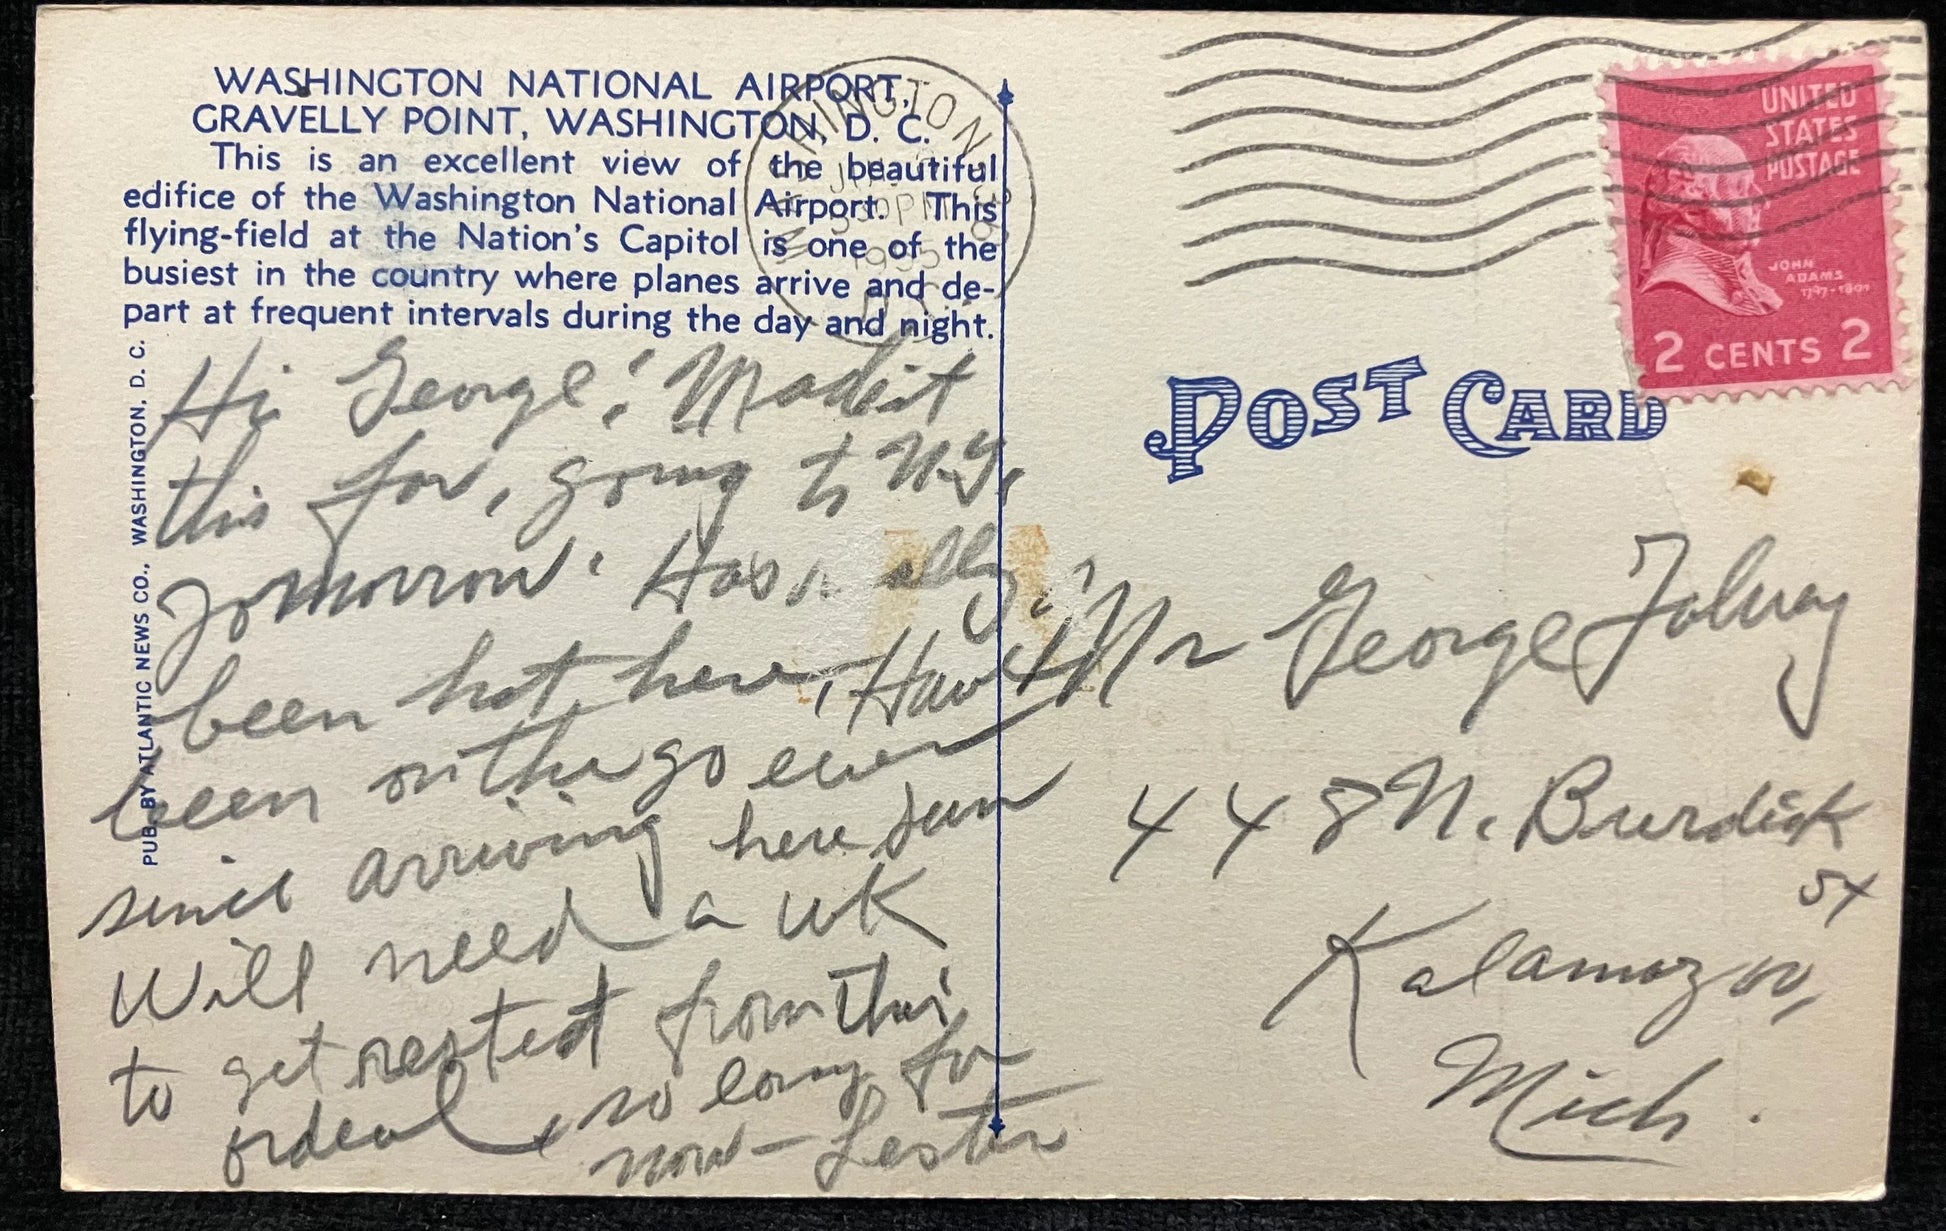 WASHINGTON NATIONAL AIRPORT,
GRAVELLY POINT, WASHINGTON, D. C.
This is an excellent view of the beautiful
edifice of the Washington National Airport. This
flying-field at the Nation's Capitol is one of the
busiest in the country where planes arrive and de-
part at frequent intervals during the day and night.
PUB. BY ATLANTIC NEWS CO., WASHINGTON, D. C.
WASHINGTON
330 PM
1955
D.C.
UNITED
STATES
POSTAGE
JOHN
ADAMS
1797-1801
2 CENTS 2
POST CARD
Hi George! Made it
this far, going to N.Y.
tomorrow. Has really
been hot here, Have
been on the go ever
since arriving here Sun
Will need a wk
to get rested from this
ordeal, so long for
now - Lester
Mr George Tolway
448 N. Burdick
St
Kalamazoo,
Mich.